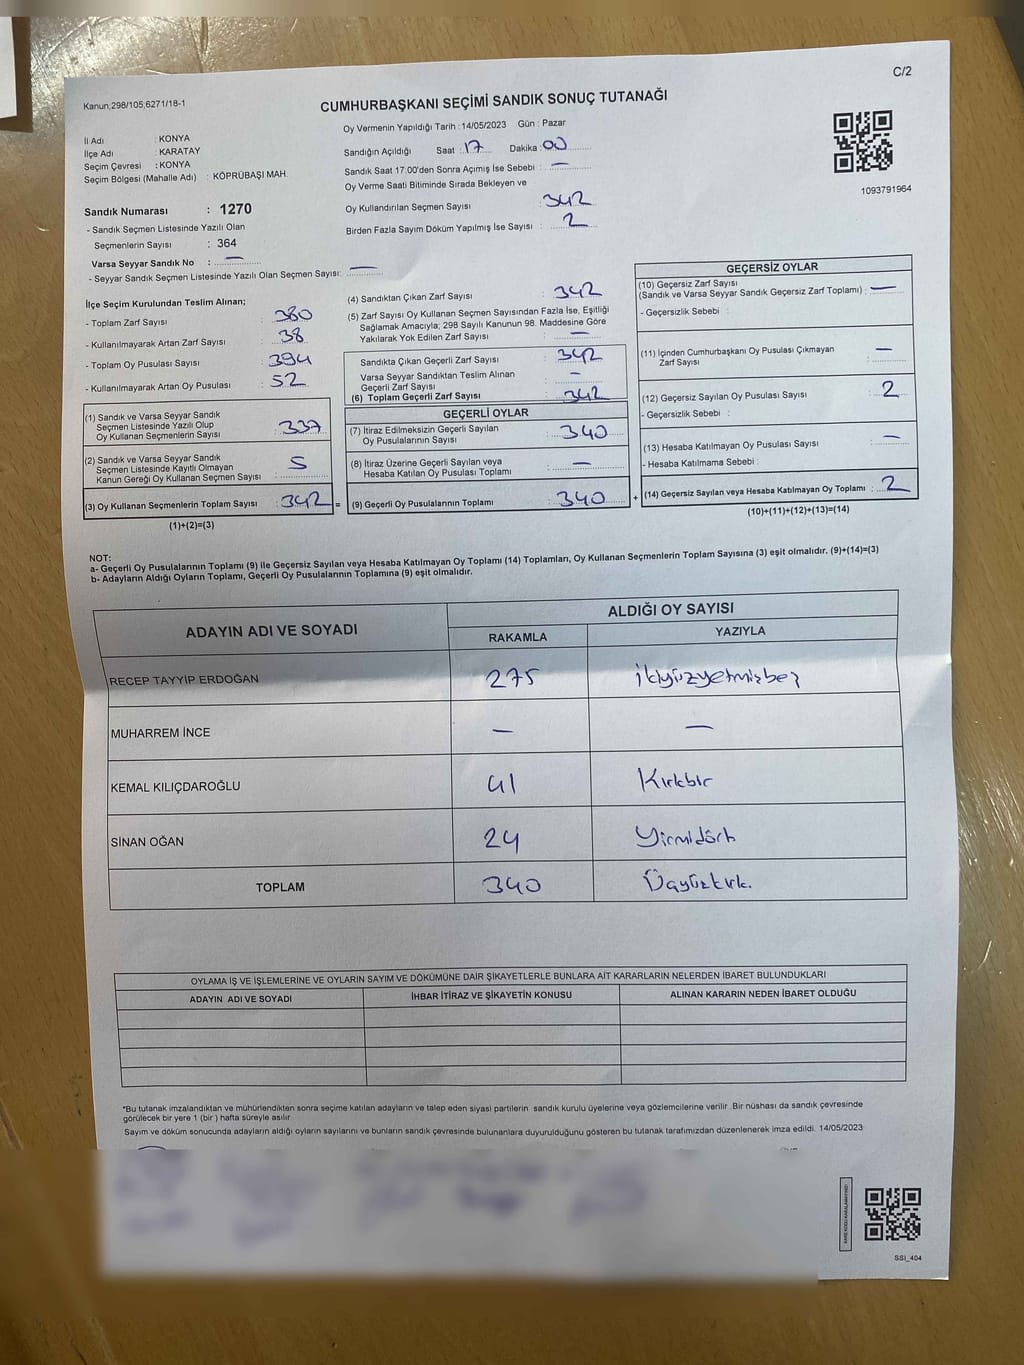 C/2
Kanun;298/105;6271/18-1
CUMHURBAŞKANI SEÇİMİ SANDIK SONUÇ TUTANAĞI
Oy Vermenin Yapıldığı Tarih : 14/05/2023 Gün : Pazar
İl Adı : KONYA
İlçe Adı : KARATAY
Seçim Çevresi : KONYA
Seçim Bölgesi (Mahalle Adı) : KÖPRÜBAŞI MAH.
Sandığın Açıldığı Saat : 17 Dakika : 00
Sandık Saat 17.00'den Sonra Açımış İse Sebebi : —
Oy Verme Saati Bitiminde Sırada Bekleyen ve
Oy Kullandırılan Seçmen Sayısı : 342
Birden Fazla Sayım Döküm Yapılmış İse Sayısı : 2
1093791964
Sandık Numarası : 1270
- Sandık Seçmen Listesinde Yazılı Olan
Seçmenlerin Sayısı : 364
Varsa Seyyar Sandık No : —
- Seyyar Sandık Seçmen Listesinde Yazılı Olan Seçmen Sayısı: —
İlçe Seçim Kurulundan Teslim Alınan;
- Toplam Zarf Sayısı : 380
- Kullanılmayarak Artan Zarf Sayısı : 38
- Toplam Oy Pusulası Sayısı : 394
- Kullanılmayarak Artan Oy Pusulası : 52
(1) Sandık ve Varsa Seyyar Sandık
Seçmen Listesinde Yazılı Olup
Oy Kullanan Seçmenlerin Sayısı : 337
(2) Sandık ve Varsa Seyyar Sandık
Seçmen Listesinde Kayıtlı Olmayan
Kanun Gereği Oy Kullanan Seçmen Sayısı : 5
(3) Oy Kullanan Seçmenlerin Toplam Sayısı : 342 =
(1)+(2)=(3)
(4) Sandıktan Çıkan Zarf Sayısı : 342
(5) Zarf Sayısı Oy Kullanan Seçmen Sayısından Fazla İse, Eşitliği
Sağlamak Amacıyla; 298 Sayılı Kanunun 98. Maddesine Göre
Yakılarak Yok Edilen Zarf Sayısı : —
Sandıkta Çıkan Geçerli Zarf Sayısı : 342
Varsa Seyyar Sandıktan Teslim Alınan
Geçerli Zarf Sayısı : -
(6) Toplam Geçerli Zarf Sayısı : 342
GEÇERLİ OYLAR
(7) İtiraz Edilmeksizin Geçerli Sayılan
Oy Pusulalarının Sayısı : 340
(8) İtiraz Üzerine Geçerli Sayılan veya
Hesaba Katılan Oy Pusulası Toplamı : —
(9) Geçerli Oy Pusulalarının Toplamı : 340 +
GEÇERSİZ OYLAR
(10) Geçersiz Zarf Sayısı
(Sandık ve Varsa Seyyar Sandık Geçersiz Zarf Toplamı) : —
- Geçersizlik Sebebi :
(11) İçinden Cumhurbaşkanı Oy Pusulası Çıkmayan
Zarf Sayısı : —
(12) Geçersiz Sayılan Oy Pusulası Sayısı : 2
- Geçersizlik Sebebi :
(13) Hesaba Katılmayan Oy Pusulası Sayısı : —
- Hesaba Katılmama Sebebi :
(14) Geçersiz Sayılan veya Hesaba Katılmayan Oy Toplamı : 2
(10)+(11)+(12)+(13)=(14)
NOT:
a- Geçerli Oy Pusulalarının Toplamı (9) ile Geçersiz Sayılan veya Hesaba Katılmayan Oy Toplamı (14) Toplamları, Oy Kullanan Seçmenlerin Toplam Sayısına (3) eşit olmalıdır. (9)+(14)=(3)
b- Adayların Aldığı Oyların Toplamı, Geçerli Oy Pusulalarının Toplamına (9) eşit olmalıdır.
ADAYIN ADI VE SOYADI ALDIĞI OY SAYISI
RAKAMLA YAZIYLA
RECEP TAYYİP ERDOĞAN 275 İkiyüzyetmişbeş
MUHARREM İNCE — —
KEMAL KILIÇDAROĞLU 41 Kırkbir
SİNAN OĞAN 24 Yirmidört
TOPLAM 340 Üçyüzkırk.
OYLAMA İŞ VE İŞLEMLERİNE VE OYLARIN SAYIM VE DÖKÜMÜNE DAİR ŞİKAYETLERLE BUNLARA AİT KARARLARIN NELERDEN İBARET BULUNDUKLARI
ADAYIN ADI VE SOYADI İHBAR İTİRAZ VE ŞİKAYETİN KONUSU ALINAN KARARIN NEDEN İBARET OLDUĞU
*Bu tutanak imzalandıktan ve mühürlendikten sonra seçime katılan adayların ve talep eden siyasi partilerin sandık kurulu üyelerine veya gözlemcilerine verilir .Bir nüshası da sandık çevresinde
görülecek bir yere 1 (bir ) hafta süreyle asılır.
Sayım ve döküm sonucunda adayların aldığı oyların sayılarını ve bunların sandık çevresinde bulunanlara duyurulduğunu gösteren bu tutanak tarafımızdan düzenlenerek imza edildi. 14/05/2023
SSİ_404